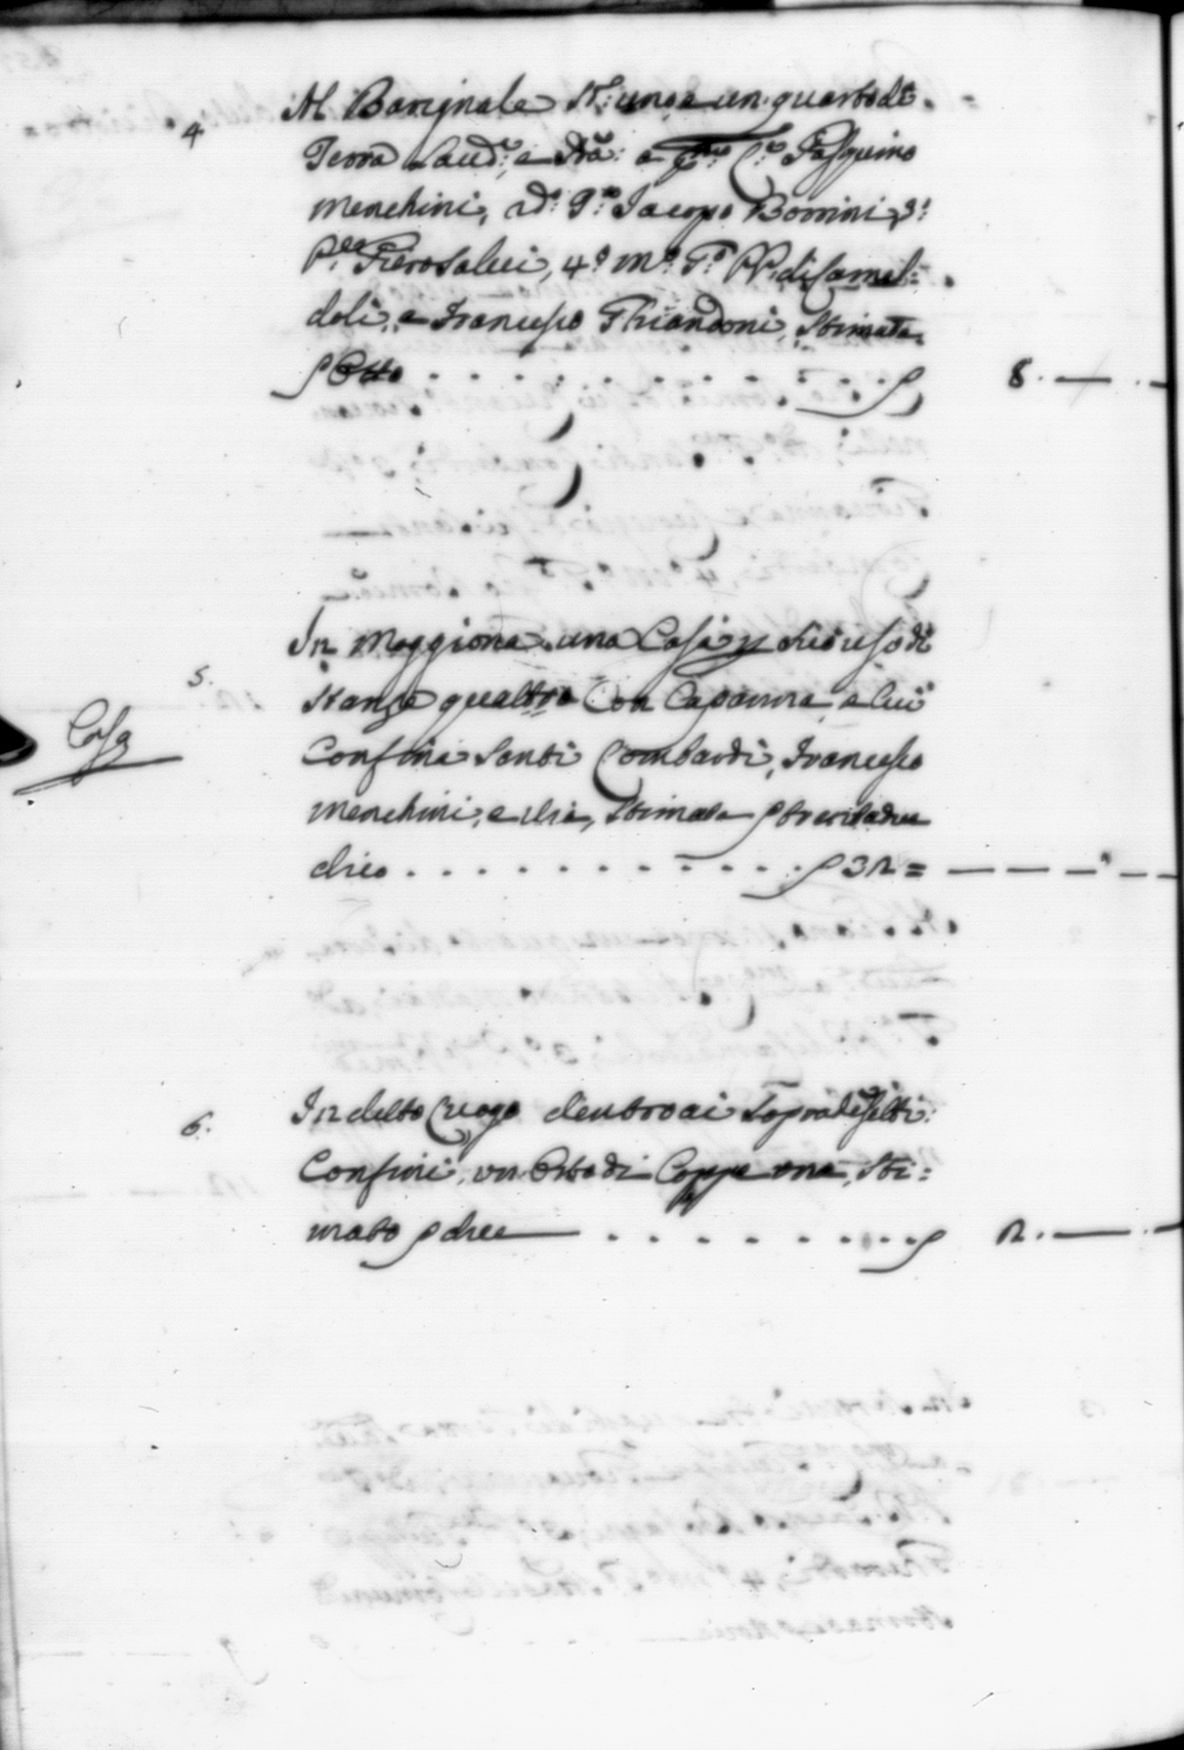 4
Al Barignale St: uno e un quarto di
Terra Laud:, e a p:mo Pasquino
Menchini, 2d: Jacopo Bonini, 3:
Pierosalui, 4.o m.o T.o PP. di Camal=
doli, e Francesco Ghiandoni, Stimata
p Otto . . . . . . . . . . . 8. —
5.
Casa
In Moggiona una Casa p suo uso di
Stanze quattro Con Capanna, a Cui
Confina Santi Lombardi, Francesco
Menchini, e Via, Stimata p trentadue
dico . . . . . . . . . . . . 32 = — — — —
6.
In detto Luogo dentro ai Sopradescritti
Confini, un Orto di Coppe una, Sti=
mato p due — . . . . . . . . 2. —